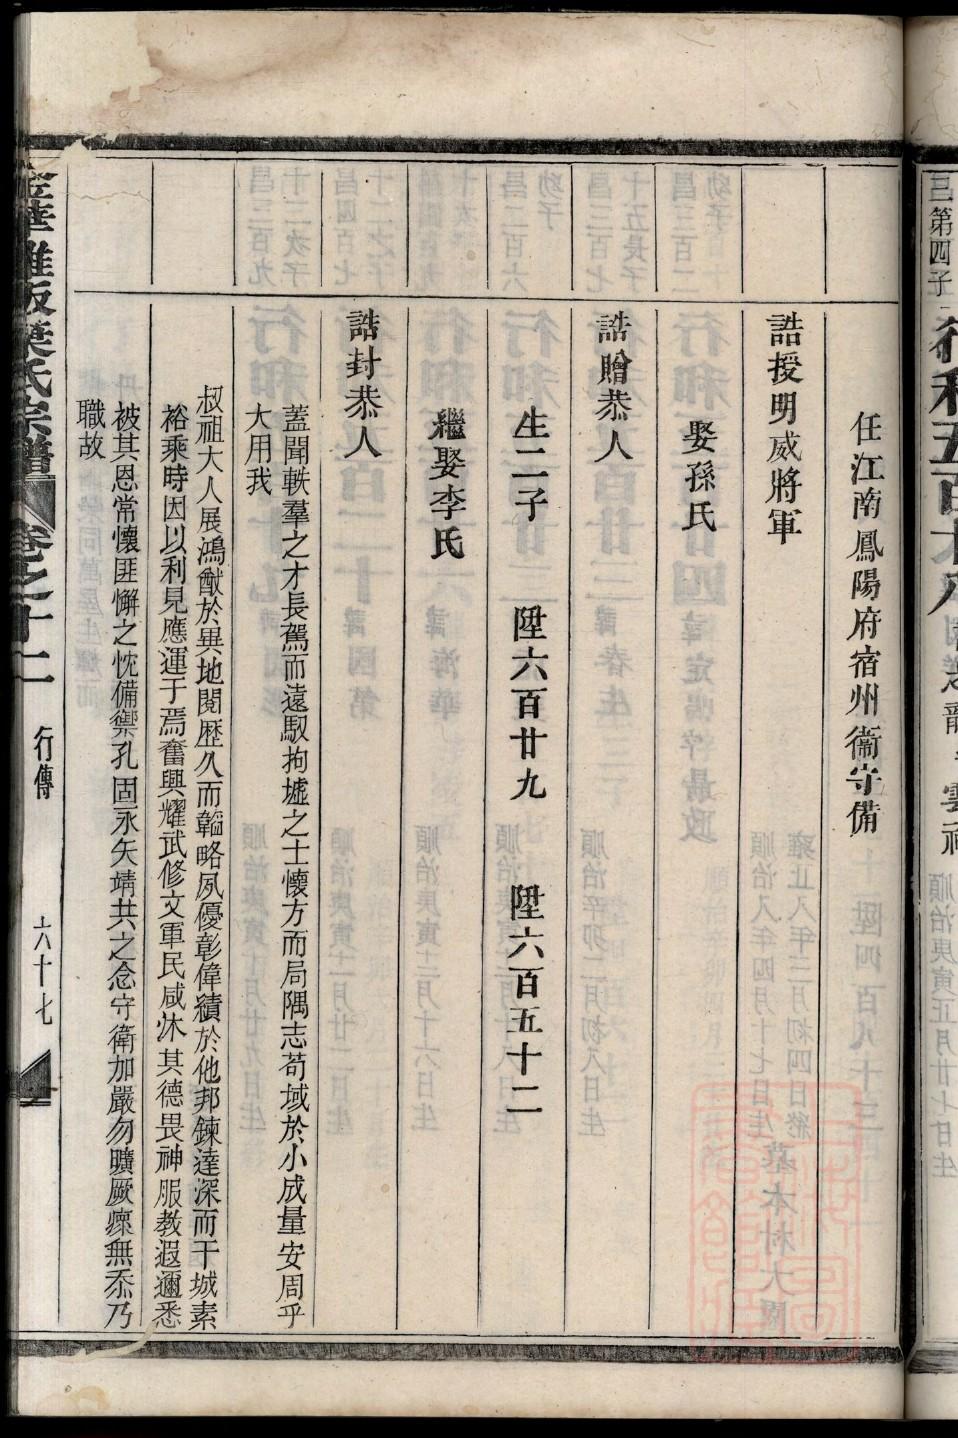 任江南鳳陽府宿州衞守備
誥授明威將軍
娶孫氏
誥贈恭人
生二子　陞六百廿九　陞六百五十二
繼娶李氏
誥封恭人
蓋聞軼羣之才長駕而遠馭拘墟之士懷方而局隅志苟域於小成量安周乎
大用我
叔祖大人展鴻猷於異地閱歷久而韜略夙優彰偉績於他邦鍊達深而干城素
裕乘時因以利見應運于焉奮興耀武修文軍民咸沐其德畏神服教遐邇悉
被其恩常懷匪懈之忱備禦孔固永矢靖共之念守衛加嚴勿曠厥瘝無忝乃
職故
金華雅畈葉氏宗譜　卷之十二　行傳　六十七
三第四子
順治庚寅正月廿七日生